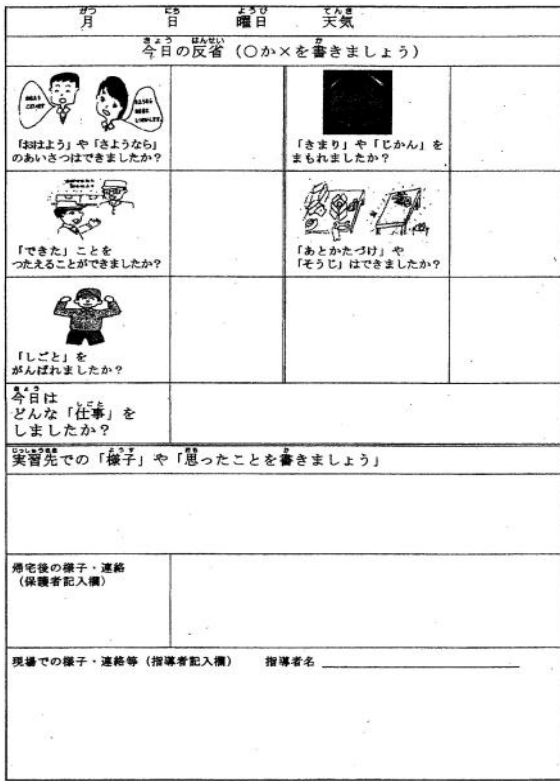 月 日 曜日 天気
今日の反省（○か×を書きましょう）
「おはよう」や「さようなら」
のあいさつはできましたか？
「きまり」や「じかん」を
まもれましたか？
「できた」ことを
つたえることができましたか？
「あとかたづけ」や
「そうじ」はできましたか？
「しごと」を
がんばれましたか？
今日は
どんな「仕事」を
しましたか？
実習先での「様子」や「思ったことを書きましょう」
帰宅後の様子・連絡
（保護者記入欄）
現場での様子・連絡等（指導者記入欄） 指導者名